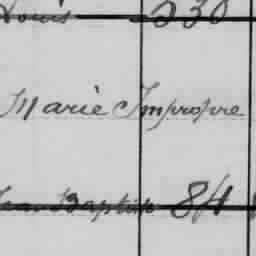 Louis 530
Marie Impropre
Jean Baptiste 84